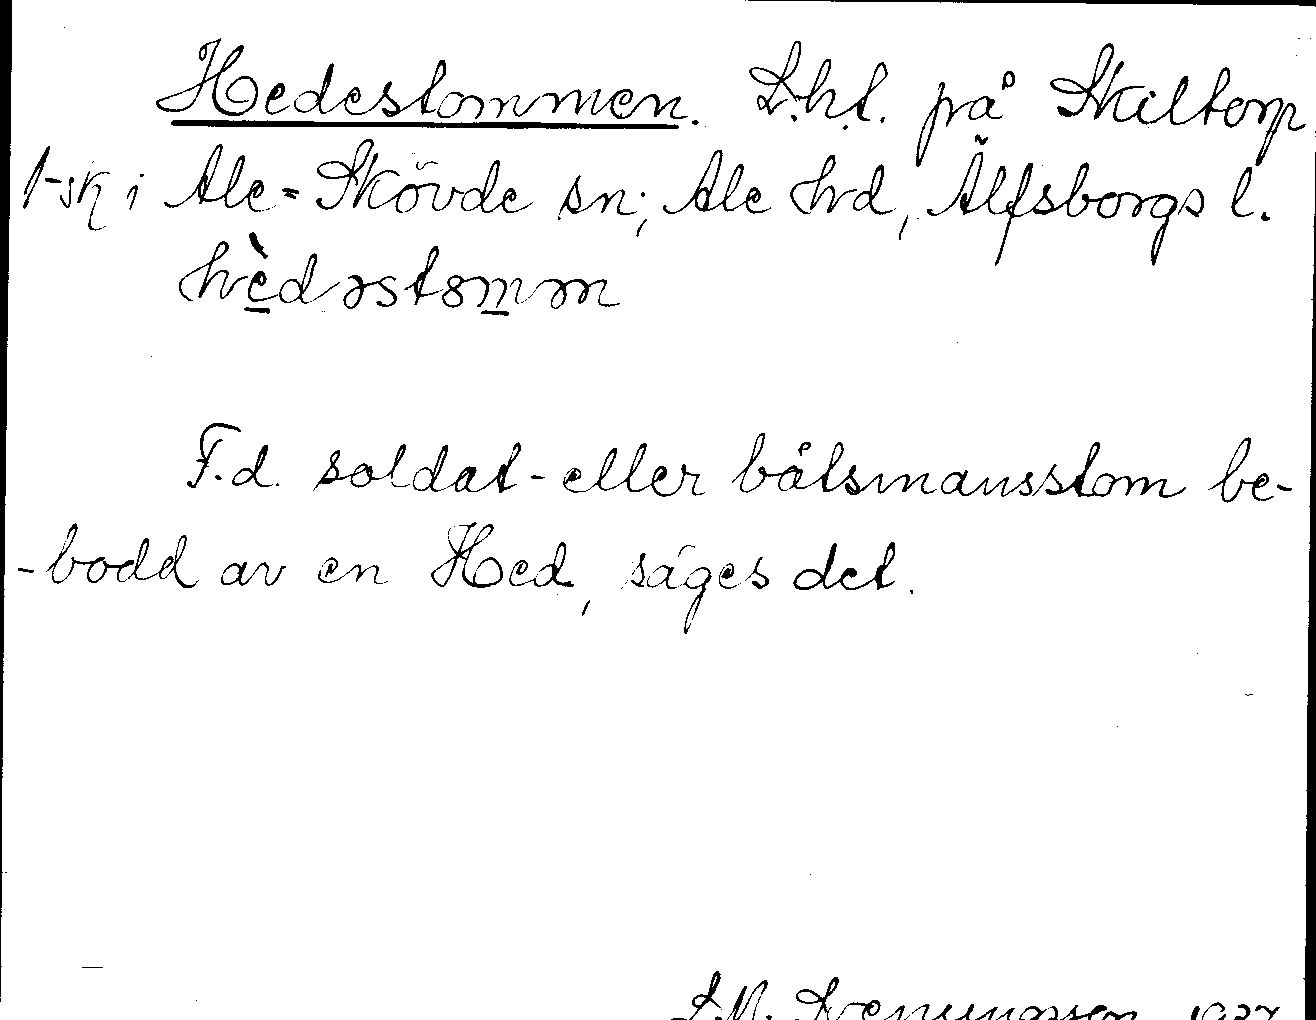 Hedestommen. L.h.t. på Skiltorp
1-sk i Ale=Skövde sn; Ale hd, Älfsborgs l.
hèdəstomən
F.d. soldat- eller båtsmansstom be-
-bodd av en Hed, säges det.